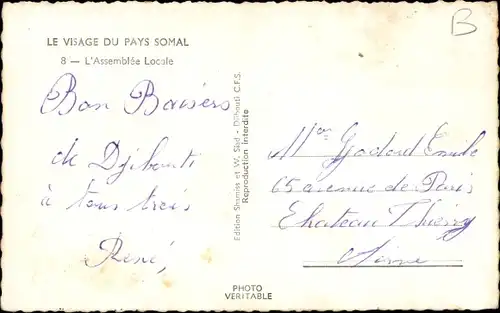 B
LE VISAGE DU PAYS SOMAL
8 — L'Assemblée Locale
Bon Baisers
de Djibouti
à tous trois
René,
Edition Shamiss et W. Saïd - Djibouti C.F.S.
Reproduction interdite
Godard Emile
65 avenue de Paris
Chateau Thierry
Aisne
PHOTO
VERITABLE